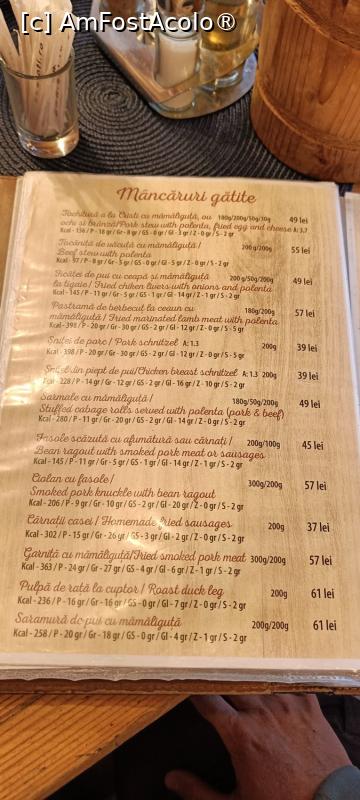 [c] AmFostAcolo®
Mâncăruri gătite
Tochitură a la Cristi cu mămăliguță, ou 180g/200g/50g/70g 49 lei
ochi și brânză/Pork stew with polenta, fried egg and cheese A: 3.7
Kcal - 136 / P - 18 gr / Gr - 8 gr / GS - 0 gr / Gl - 3 gr / Z - 0 gr / S - 2 gr
Tocăniță de văcuță cu mămăliguță / 200g/200g 55 lei
Beef stew with polenta
Kcal - 97 / P - 8 gr / Gr - 5 gr / GS - 0 gr / Gl - 5 gr / Z - 0 gr / S - 2 gr
Ficăței de pui cu ceapă și mămăligută 200g/50g/200g 49 lei
la tigaie / Fried chiken livers with onions and polenta
Kcal - 145 / P - 11 gr / Gr - 5 gr / GS - 1 gr / Gl - 14 gr / Z - 1 gr / S - 2 gr
Pastramă de berbecuț la ceaun cu 180g/200g 57 lei
mămăliguță / Fried marinated lamb meat with polenta
Kcal - 398 / P - 20 gr / Gr - 30 gr / GS - 2 gr / Gl - 12 gr / Z - 0 gr / S - 5 gr
Șnițel de porc / Pork schnitzel A: 1.3 200g 39 lei
Kcal - 398 / P - 20 gr / Gr - 30 gr / GS - 2 gr / Gl - 12 gr / Z - 0 gr / S - 5 gr
Șnițel din piept de pui/Chicken breast schnitzel A: 1.3 200g 39 lei
Kcal - 228 / P - 14 gr / Gr - 12 gr / GS - 2 gr / Gl - 16 gr / Z - 10 gr / S - 2 gr
Sarmale cu mămăligută / 180g/50g/200g 49 lei
Stuffed cabage rolls served with polenta (pork & beef)
Kcal - 280 / P - 11 gr / Gr - 20 gr / GS - 2 gr / Gl - 14 gr / Z - 0 gr / S - 2 gr
Fasole scăzută cu afumătură sau cârnați / 200g/100g 45 lei
Bean ragout with smoked pork meat or sausages
Kcal - 145 / P - 11 gr / Gr - 5 gr / GS - 1 gr / Gl - 14 gr / Z - 1 gr / S - 2 gr
Ciolan cu fasole / 300g/200g 57 lei
Smoked pork knuckle with bean ragout
Kcal - 206 / P - 9 gr / Gr - 10 gr / GS - 2 gr / Gl - 20 gr / Z - 0 gr / S - 2 gr
Cârnații casei / Homemade fried sausages 200g 37 lei
Kcal - 302 / P - 15 gr / Gr - 26 gr / GS - 3 gr / Gl - 2 gr / Z - 0 gr / S - 2 gr
Garniță cu mămăliguță/Fried smoked pork meat 300g/200g 57 lei
Kcal - 363 / P - 24 gr / Gr - 27 gr / GS - 4 gr / Gl - 6 gr / Z - 1 gr / S - 2 gr
Pulpă de rață la cuptor / Roast duck leg 200g 61 lei
Kcal - 236 / P - 16 gr / Gr - 16 gr / GS - 0 gr / Gl - 7 gr / Z - 0 gr / S - 2 gr
Saramură de pui cu mămăliguță 200g/200g 61 lei
Kcal - 258 / P - 20 gr / Gr - 18 gr / GS - 0 gr / Gl - 4 gr / Z - 1 gr / S - 2 gr